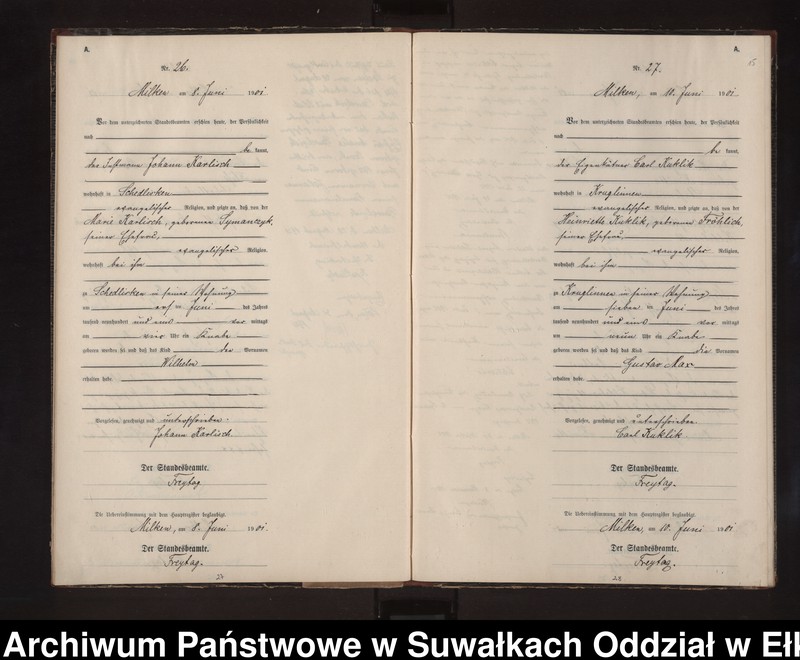 A.
Nr. 26.
Milken am 8. Juni 1901
Vor dem unterzeichneten Standesbeamten erschien heute, der Persönlichkeit
nach
be kannt,
der Instmann Johann Karlisch
wohnhaft in Schedlisken
evangelischer Religion, und zeigte an, daß von der
Marie Karlisch, geborenen Symanczyk,
seiner Ehefrau,
evangelischer Religion,
wohnhaft bei ihm
zu Schedlisken in seiner Wohnung
am Juni des Jahres
tausend neunhundert und eins vor mittags
um vier Uhr ein Knabe
geboren worden sei und daß das Kind den Vornamen
Wilhelm
erhalten habe.
Vorgelesen, genehmigt und unterschrieben
Johann Karlisch
Der Standesbeamte.
Freytag
Die Uebereinstimmung mit dem Hauptregister beglaubigt.
Milken, am 8. Juni 1901
Der Standesbeamte.
Freytag.
A.
Nr. 27.
Milken, am 10. Juni 1901
Vor dem unterzeichneten Standesbeamten erschien heute, der Persönlichkeit
nach
be kannt,
der Eigenkätner Carl Kuklik
wohnhaft in Kruglinnen
evangelischer Religion, und zeigte an, daß von der
Heinriette Kuklik, geborenen Fröhlich,
seiner Ehefrau,
evangelischer Religion,
wohnhaft bei ihm
zu Kruglinnen in seiner Wohnung
am sieben ten Juni des Jahres
tausend neunhundert und eins vor mittags
um neun Uhr ein Knabe
geboren worden sei und daß das Kind die Vornamen
Gustav Max
erhalten habe.
Vorgelesen, genehmigt und unterschrieben
Carl Kuklik.
Der Standesbeamte.
Freytag.
Die Uebereinstimmung mit dem Hauptregister beglaubigt.
Milken, am 10. Juni 1901
Der Standesbeamte.
Freytag.
Archiwum Państwowe w Suwałkach Oddział w Ełk